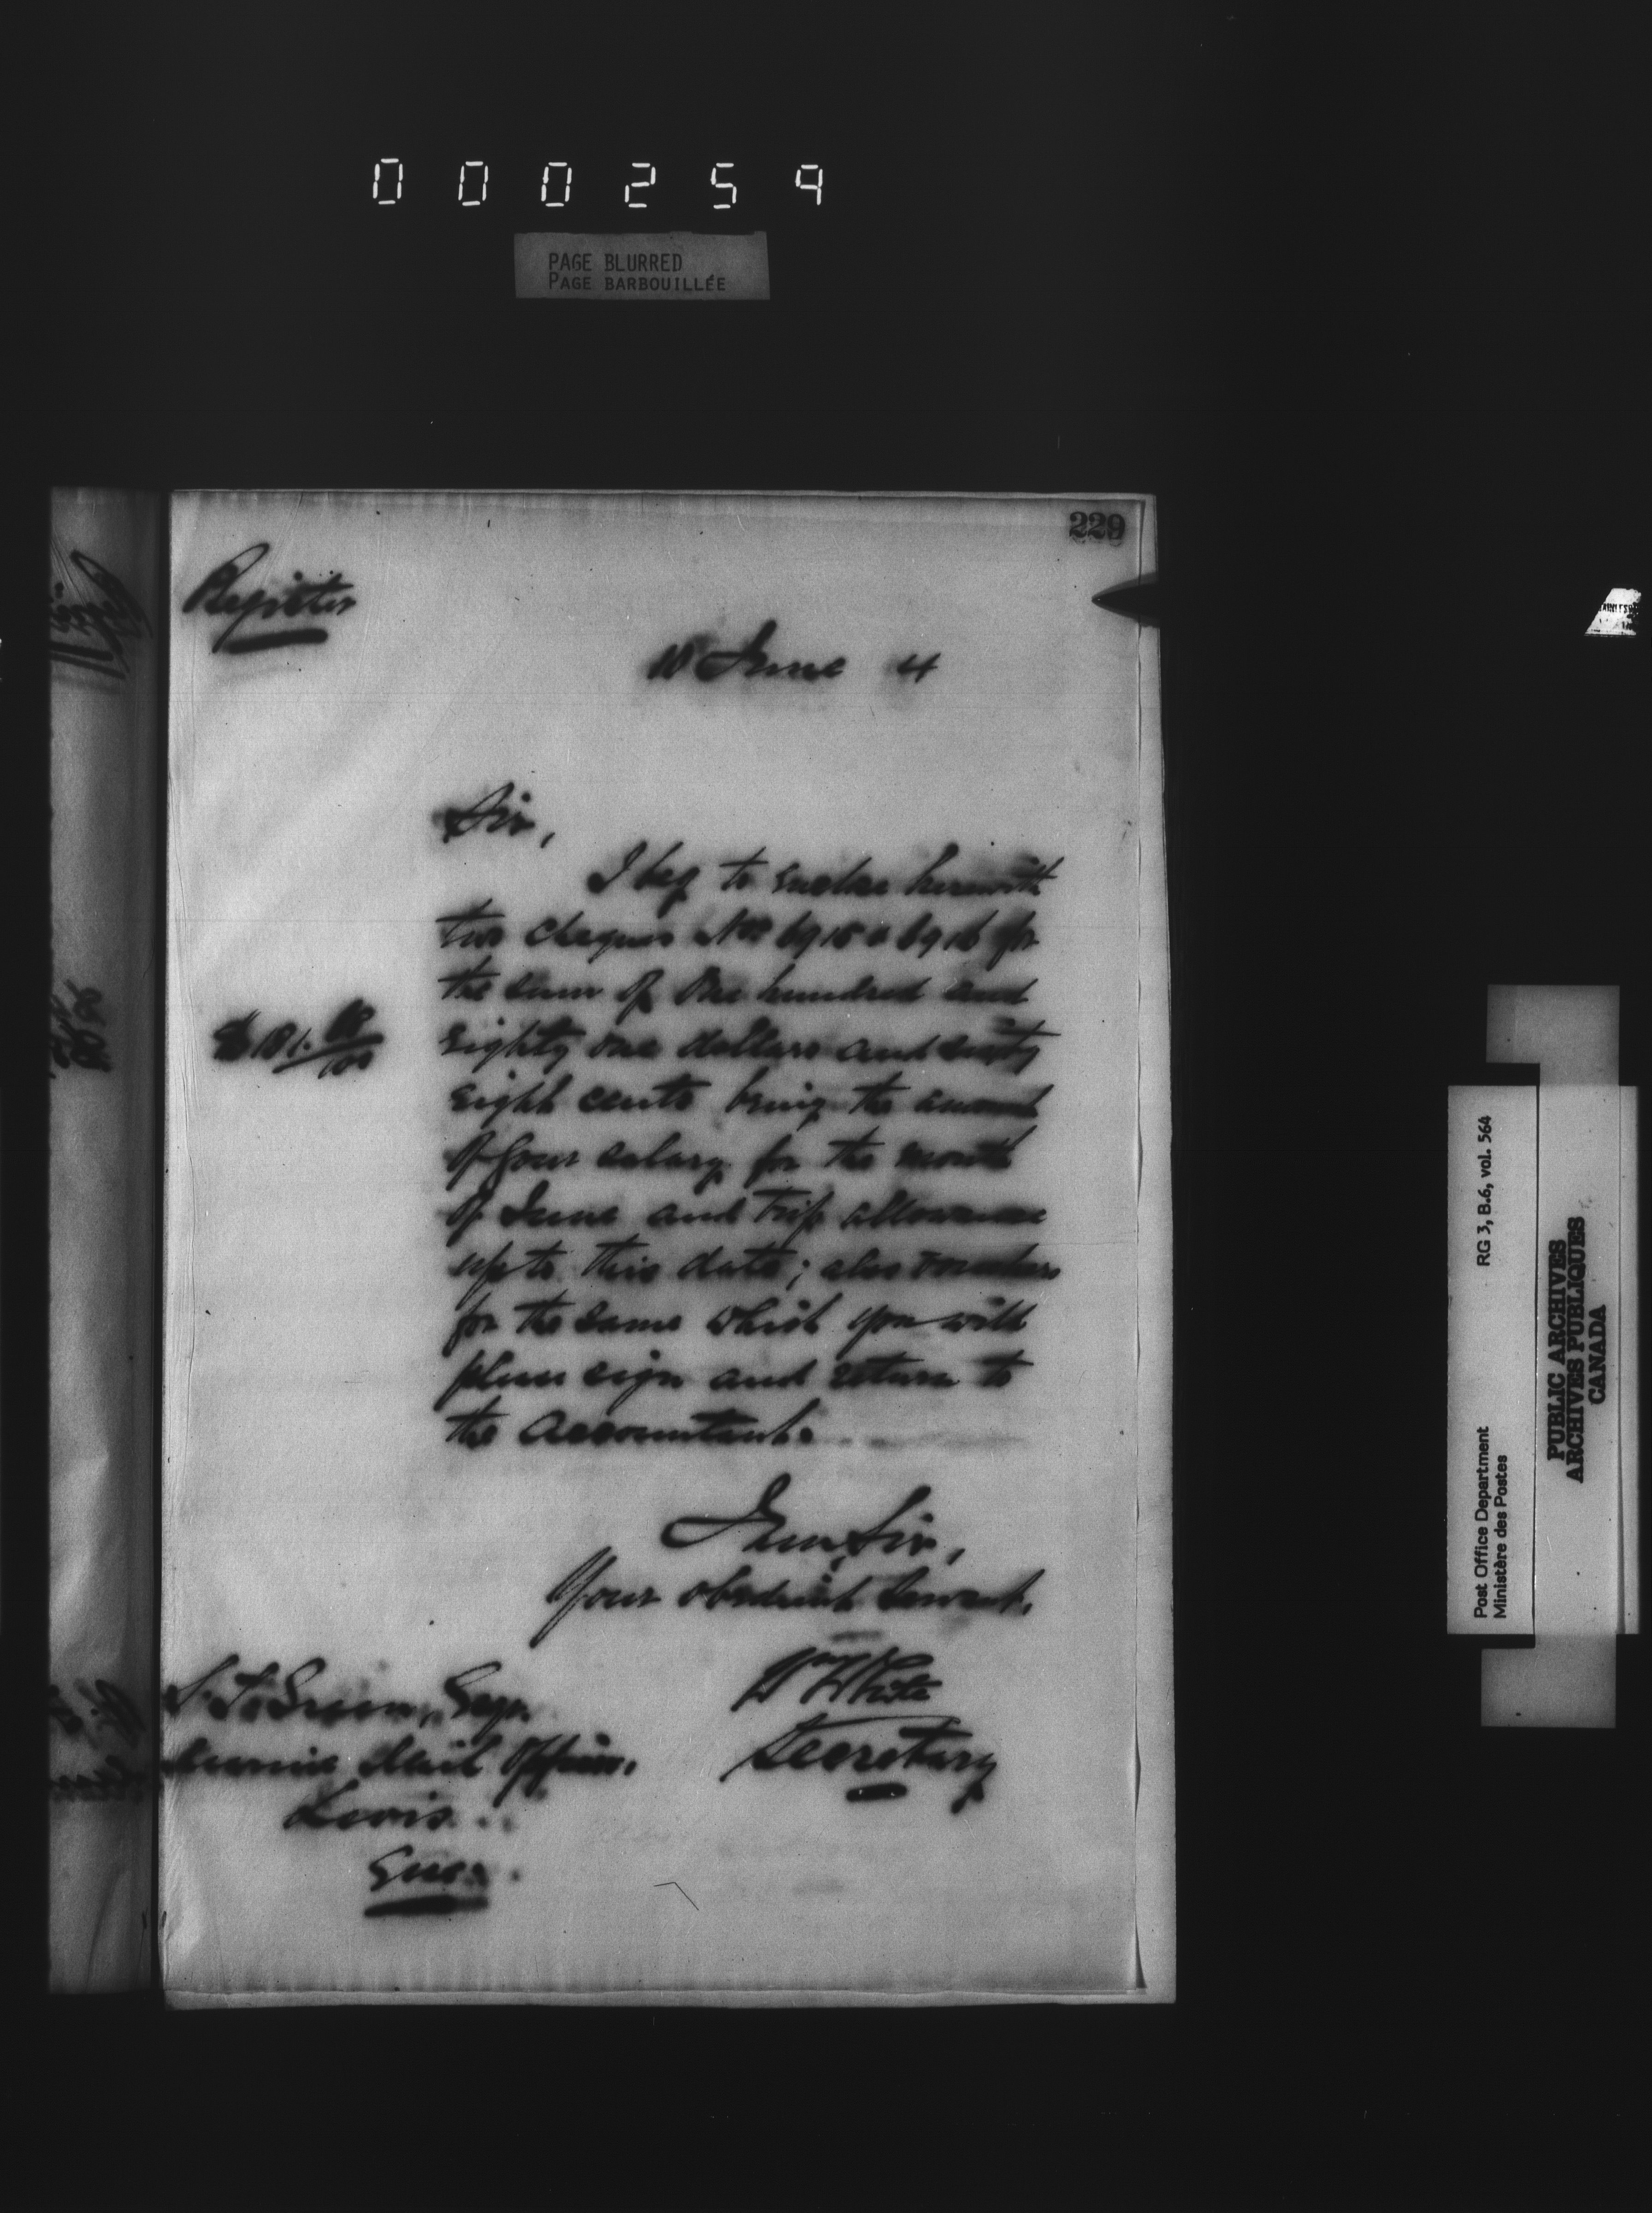 000259
PAGE BLURRED
PAGE BARBOUILLÉE
229
Register
18 June 4
Sir,
I beg to enclose herewith
two cheques Nos 6915 & 6916 for
the sum of One hundred and
$181.68/100
Eighty one dollars and sixty
eight cents being the amount
of your salary for the month
of June and Trip allowance
up to this date; also vouchers
for the same which you will
please sign and return to
the Accountant.
I am, Sir,
Your obedient Servant,
Wm White
Secretary
Green, Esqr.
Marine Mail Officer,
Levis
Que.
Post Office Department
Ministère des Postes
RG 3, B.6, vol. 564
PUBLIC ARCHIVES
ARCHIVES PUBLIQUES
CANADA